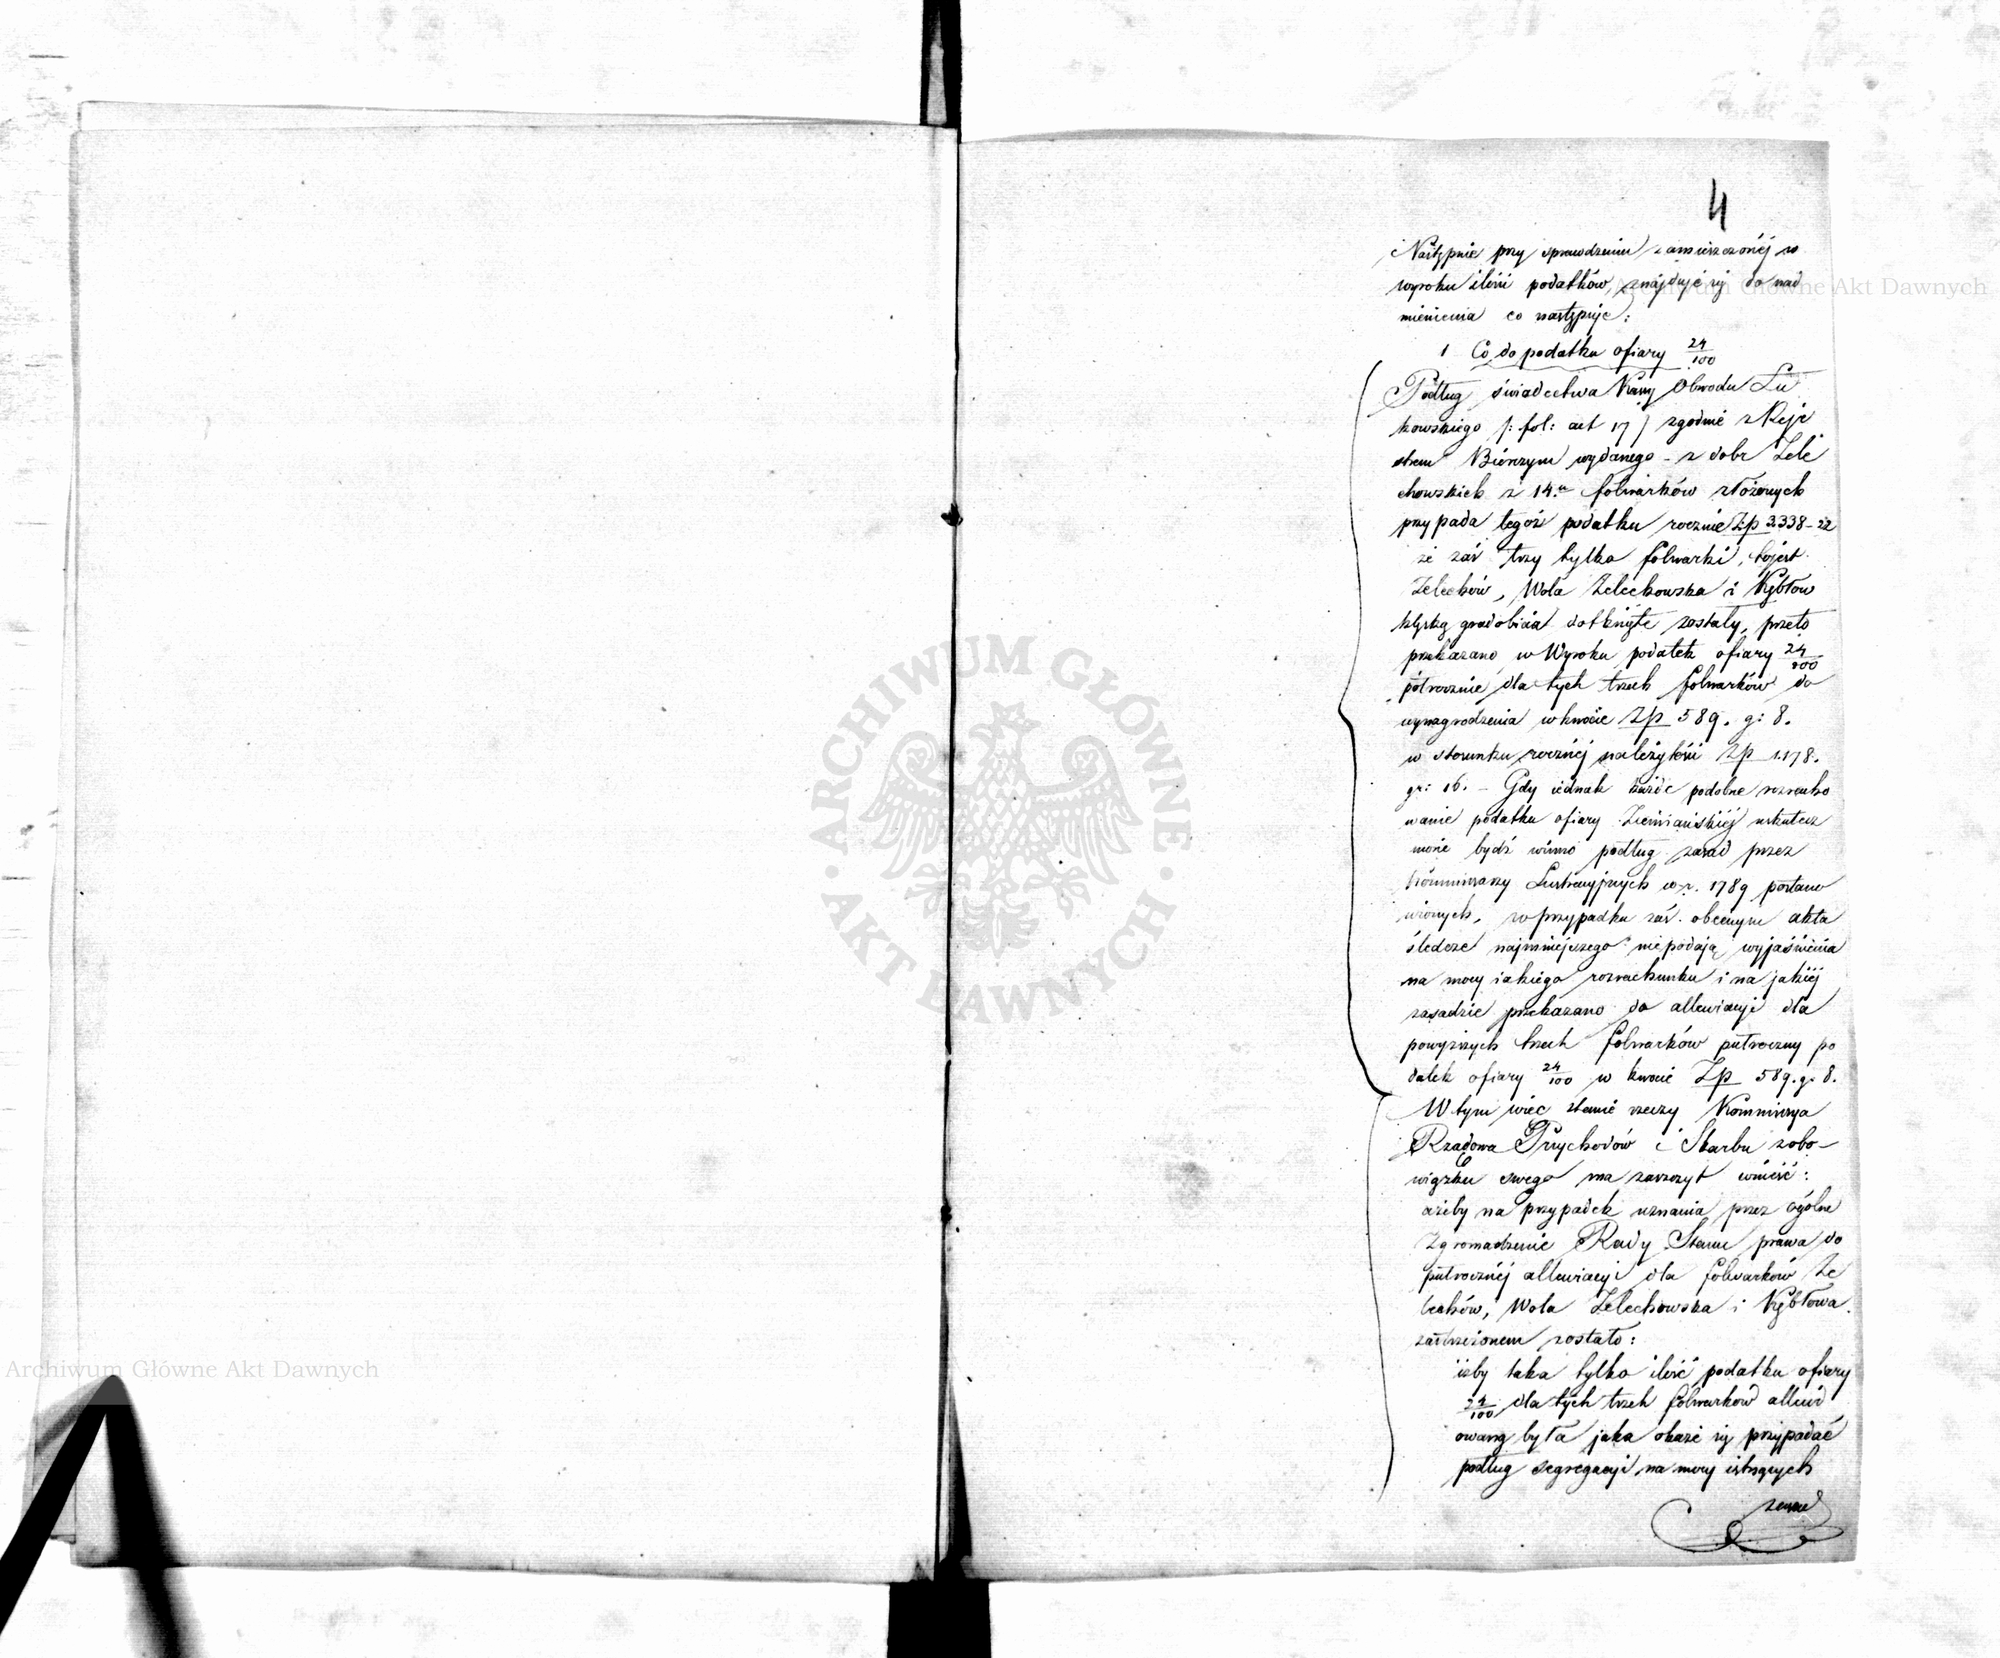 4
Następnie przy sprawdzeniu zamieszczonéj w
wyroku ilości podatków, znajduje się do nad
mienienia co następuje:
1 Co do podatku ofiary 24/100
Podług świadectwa Kassy Obwodu Łu
kowskiego /: fol: act 17 / zgodnie z Reje
strem Bierczym wydanego – z dobr Żele
chowskich z 14.u folwarków złożonych
przypada tegoż podatku rocznie Złp 3.338 – 22
że zaś trzy tylko folwarki, to jest
Żelechów, Wola Żelechowska i Kębłow
klęską gradobicia dotknięte zostały, przeto
przekazano w Wyroku podatek ofiary 24/100
półrocznie dla tych trzech folwarków do
wynagrodzenia w kwocie Złp 589. g: 8.
w stosunku rocznéj należytości Złp 1.178.
gr: 16. – Gdy iednak każde podobne rozracho
wanie podatku ofiary Ziemiańskiéj uskutecz
nione bydź winno podług zasad przez
Kommissarzy Lustracyjnych w r. 1789 postano
wionych, w przypadku zaś obecnym akta
śledcze najmniejszego nie podają wyjaśnienia
na mocy iakiego rozrachunku i na jakiéj
zasadzie przekazano do allewiacyi dla
powyższych trzech folwarków półroczny po
datek ofiary 24/100 w kwocie Złp 589. g: 8.
W tym więc stanie rzeczy Kommissya
Rządowa Przychodów i Skarbu z obo–
wiązku swego ma zaszczyt wnieść:
ażeby na przypadek uznania przez ogólne
Zgromadzenie Rady Stanu prawa do
półrocznéj allewiacyi dla folwarków Że
lechów, Wola Żelechowska i Kębłowa
zastrzeżonem zostało:
iżby taka tylko ilość podatku ofiary
24/100 dla tych trzech folwarków allewi
owaną była jaka okaże się przypadać
podług segregacyi na mocy istnących
zasad
Archiwum Główne Akt Dawnych
Archiwum Główne Akt Dawnych
ARCHIWUM GŁÓWNE · AKT DAWNYCH ·